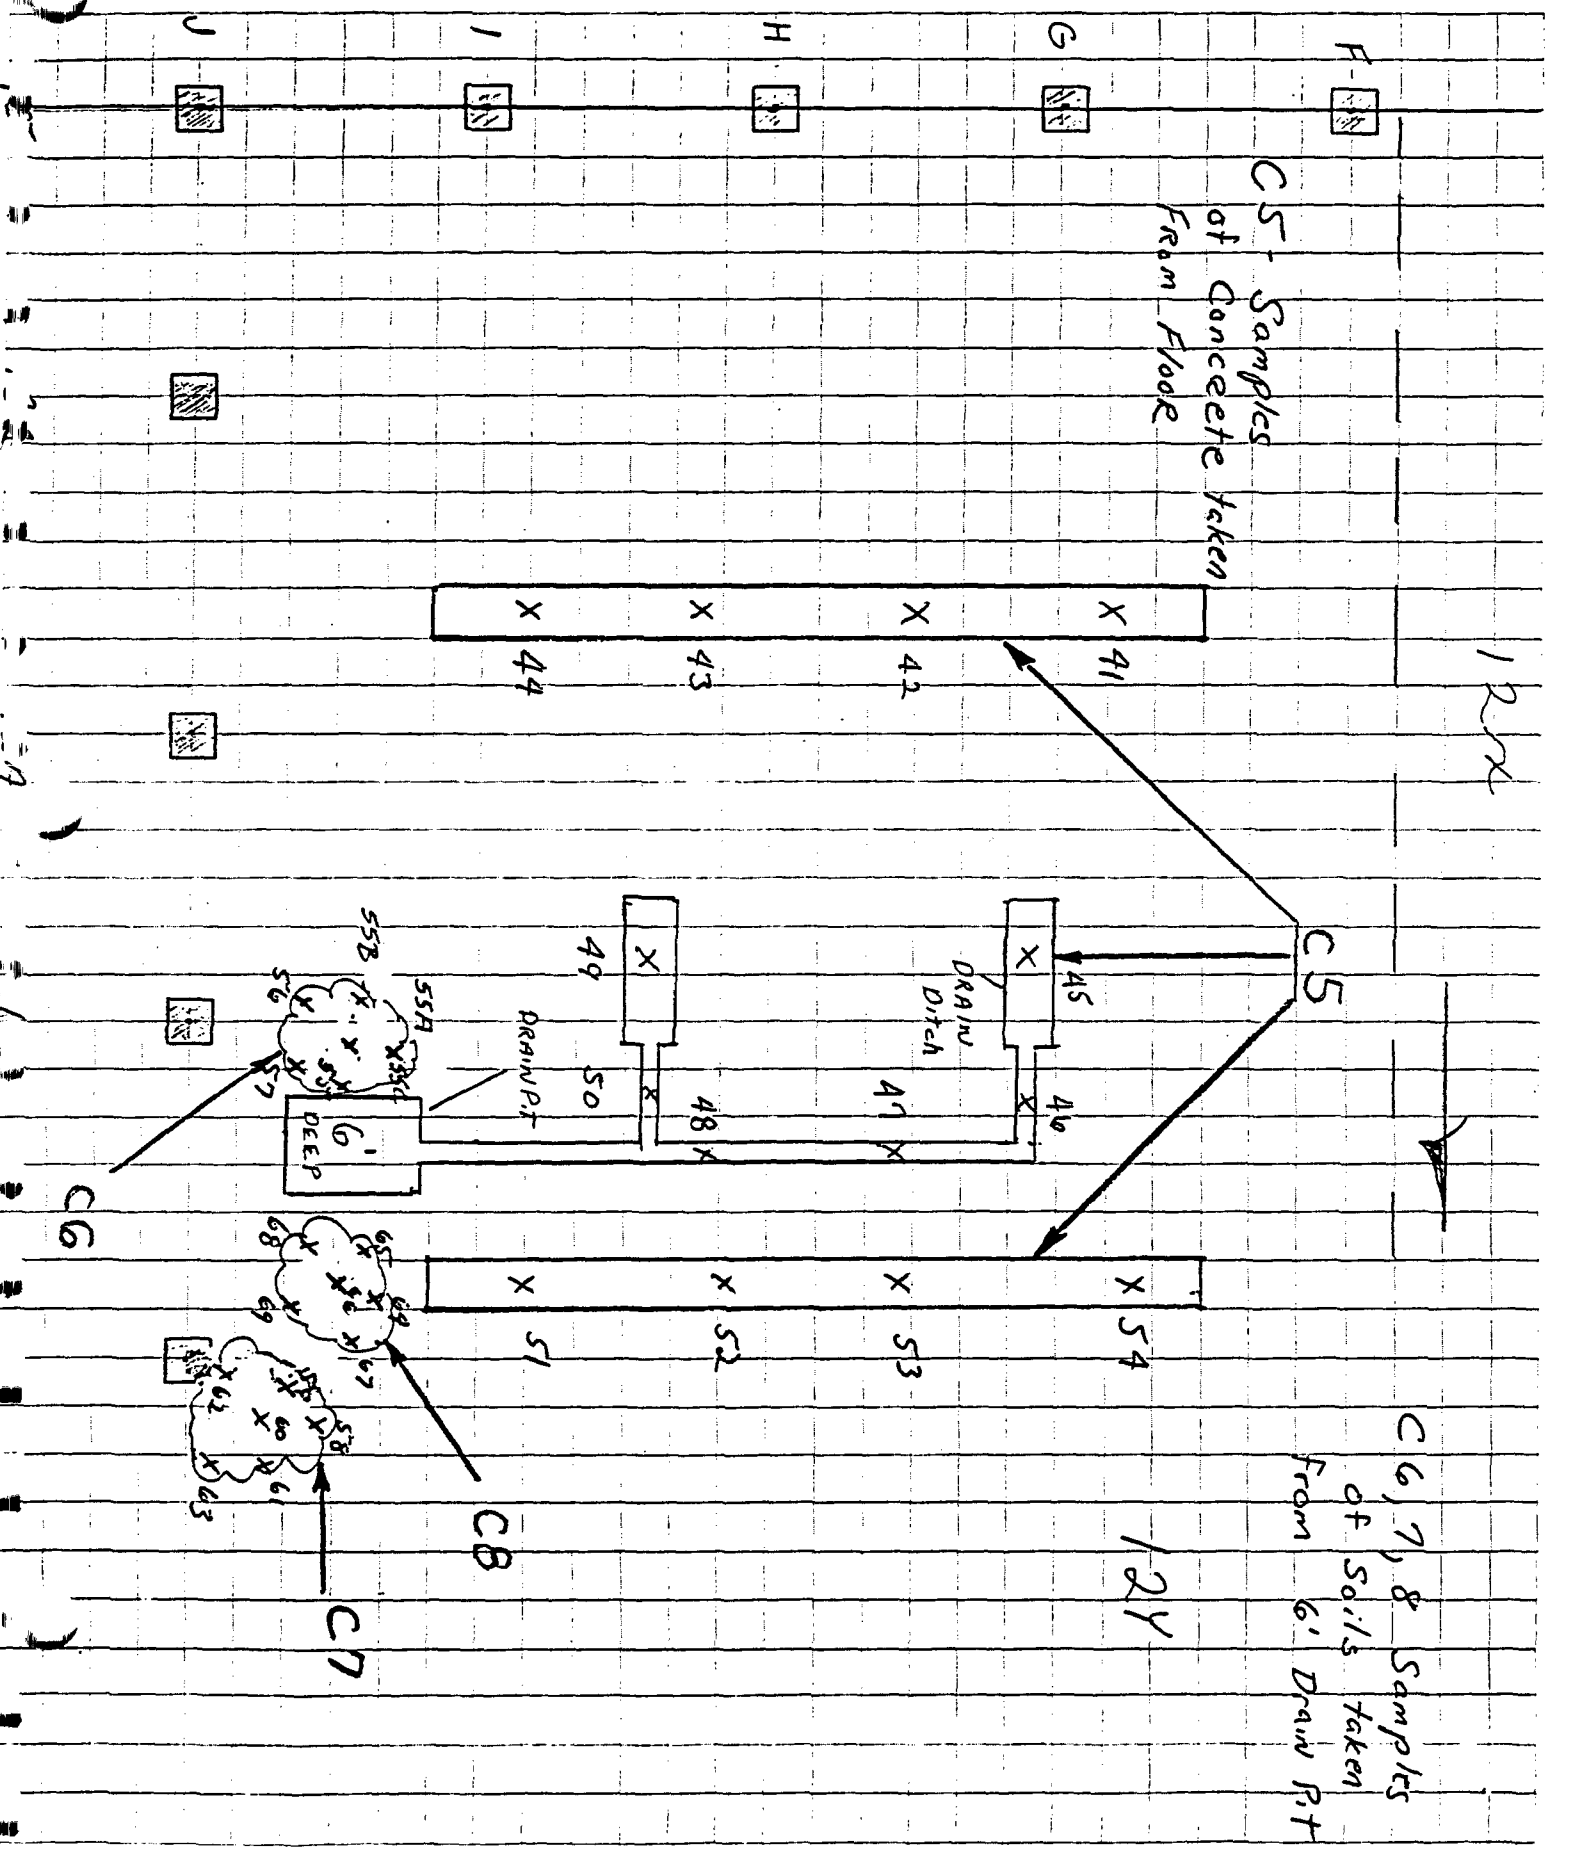 J
I
H
G
F
C5- Samples
of Conceete taken
From Floor
12X
44
43
42
41
C5
45
DRAIN
Ditch
49
46
47
48
50
DRAIN Pit
6'
DEEP
55A
55B
55C
56
57
C6
54
53
52
51
65
68
69
67
C8
58
60
61
62
63
C7
12Y
C6,7,8 Samples
of Soils taken
from 6' Drain Pit